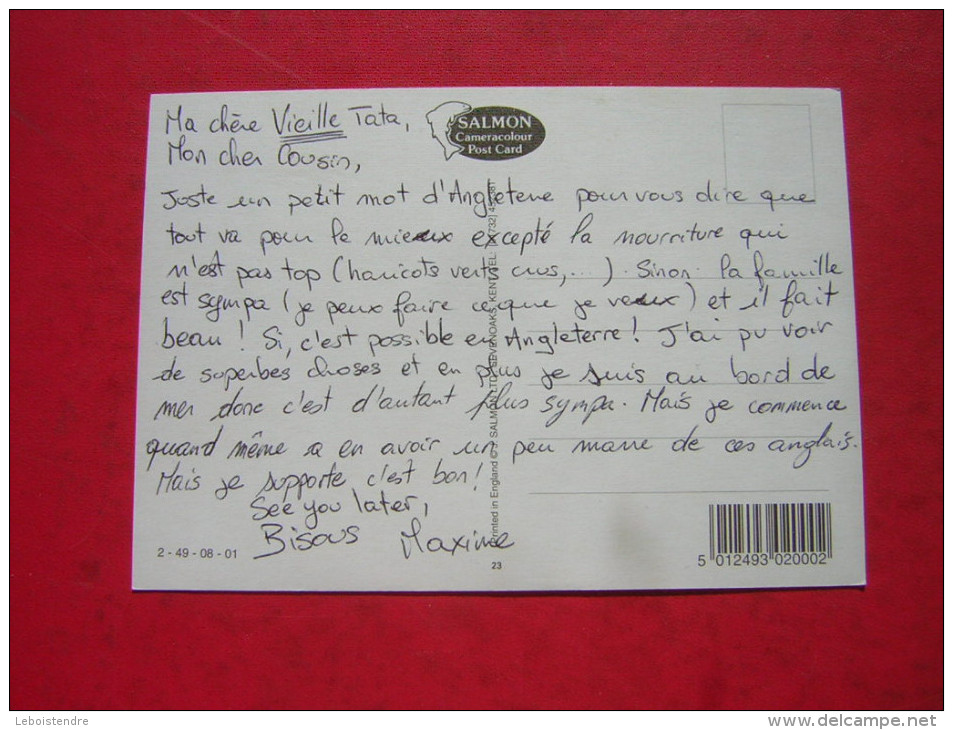 Ma chère Vieille Tata,
SALMON
Cameracolour
Post Card
Mon cher Cousin,
Juste un petit mot d'Angleterre pour vous dire que
tout va pour le mieux excepté la nourriture qui
n'est pas top (haricots verts crus,...). Sinon la famille
est sympa (je peux faire ce que je veux) et il fait
beau ! Si, c'est possible en Angleterre ! J'ai pu voir
de superbes choses et en plus je suis au bord de
mer donc c'est d'autant plus sympa. Mais je commence
quand même a en avoir un peu marre de ces anglais.
Mais je supporte c'est bon !
See you later,
Bisous Maxime
Printed in England © J SALMON LTD, SEVENOAKS, KENT
2 - 49 - 08 - 01
23
5 012493 020002
Leboistendre
www.delcampe.net